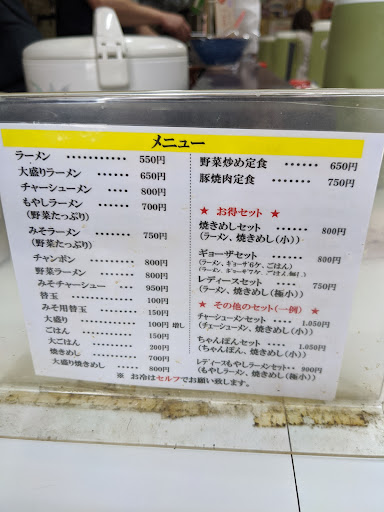 メニュー
ラーメン ・・・・・・・・・・・ 550円
大盛りラーメン ・・・・・・ 650円
チャーシューメン ・・・・ 800円
もやしラーメン ・・・・・・ 700円
(野菜たっぷり)
みそラーメン ・・・・・・・ 750円
(野菜たっぷり)
チャンポン ・・・・・・・・ 800円
野菜ラーメン ・・・・・・・ 800円
みそチャーシュー ・・・・ 950円
替玉 ・・・・・・・・・・・ 100円
みそ用替玉 ・・・・・・・・ 150円
大盛り ・・・・・・・・・・ 100円 増し
ごはん ・・・・・・・・・・ 150円
大ごはん ・・・・・・・・・ 200円
焼きめし ・・・・・・・・・ 700円
大盛り焼きめし ・・・・・・ 800円
野菜炒め定食 ・・・・・・ 650円
豚焼肉定食 ・・・・・・・ 750円
★ お得セット ★
焼きめしセット ・・・・・・ 800円
(ラーメン、焼きめし(小))
ギョーザセット ・・・・・・ 800円
(ラーメン、ギョーザ6ケ、ごはん)
レディースセット ・・・・・ 750円
(ラーメン、焼きめし(極小))
★ その他のセット(一例) ★
チャーシューメンセット ・・・ 1,050円
(チューシューメン、焼きめし(小))
ちゃんぽんセット ・・・・ 1,050円
(ちゃんぽん、焼きめし(小))
レディースもやしラーメンセット・・ 900円
(もやしラーメン、焼きめし(極小))
※ お冷はセルフでお願い致します。